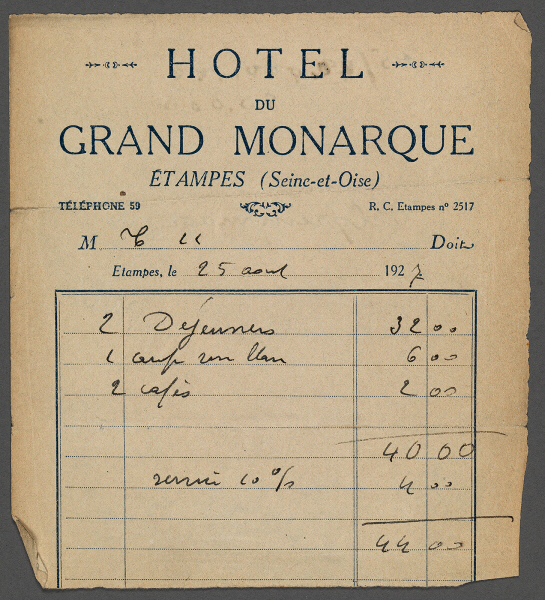 HOTEL
DU
GRAND MONARQUE
ÉTAMPES (Seine-et-Oise)
TÉLÉPHONE 59 R. C. Etampes nº 2517
M Doit
Etampes, le 25 aout 1927
2 Déjeuners 32 00
1 6 00
2 cafés 2 00
40 00
service 10 % 4 00
44 00